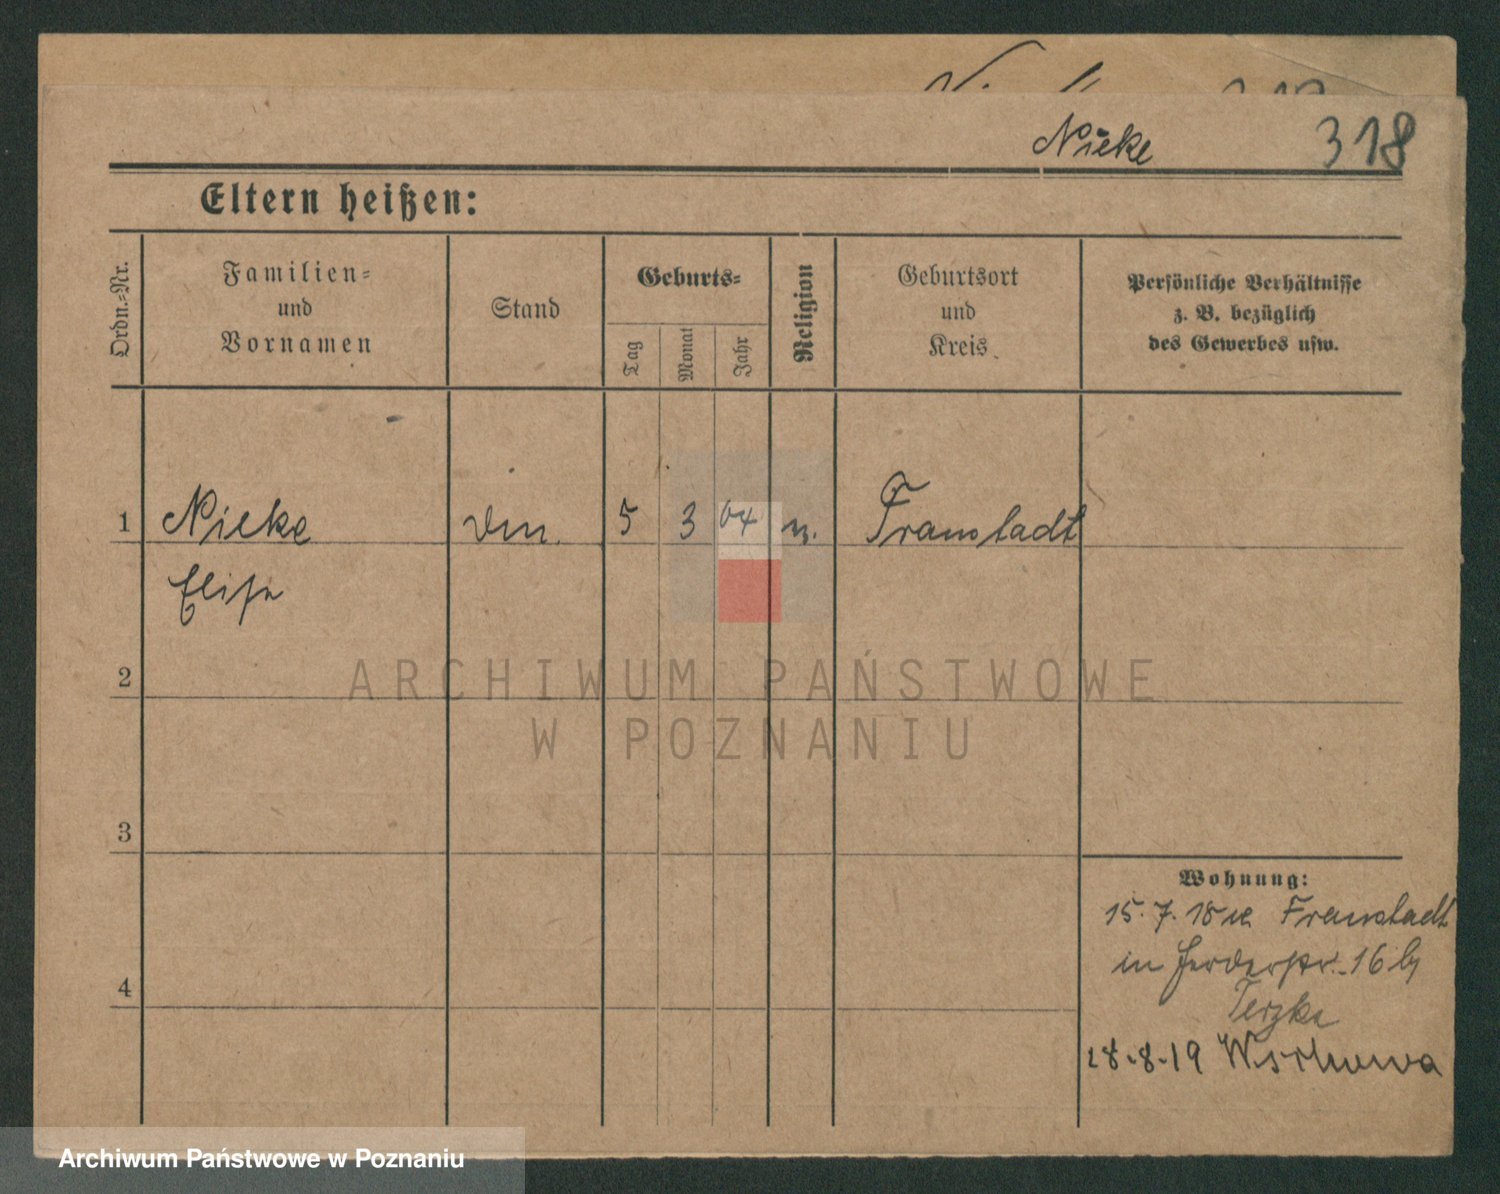 Nieke 318
Eltern heißen:
Ordn.=Nr.
Familien=
und
Vornamen
Stand
Geburts=
Tag
Monat
Jahr
Religion
Geburtsort
und
Kreis
Persönliche Verhältnisse
z. B. bezüglich
des Gewerbes usw.
1 Nieke 5 3 04 Fraustadt
Elise
2
ARCHIWUM PAŃSTWOWE
W POZNANIU
3
4
Wohnung:
15. 7. 18 Fraustadt
in 16 b/
28.8.19 Wschowa
Archiwum Państwowe w Poznaniu